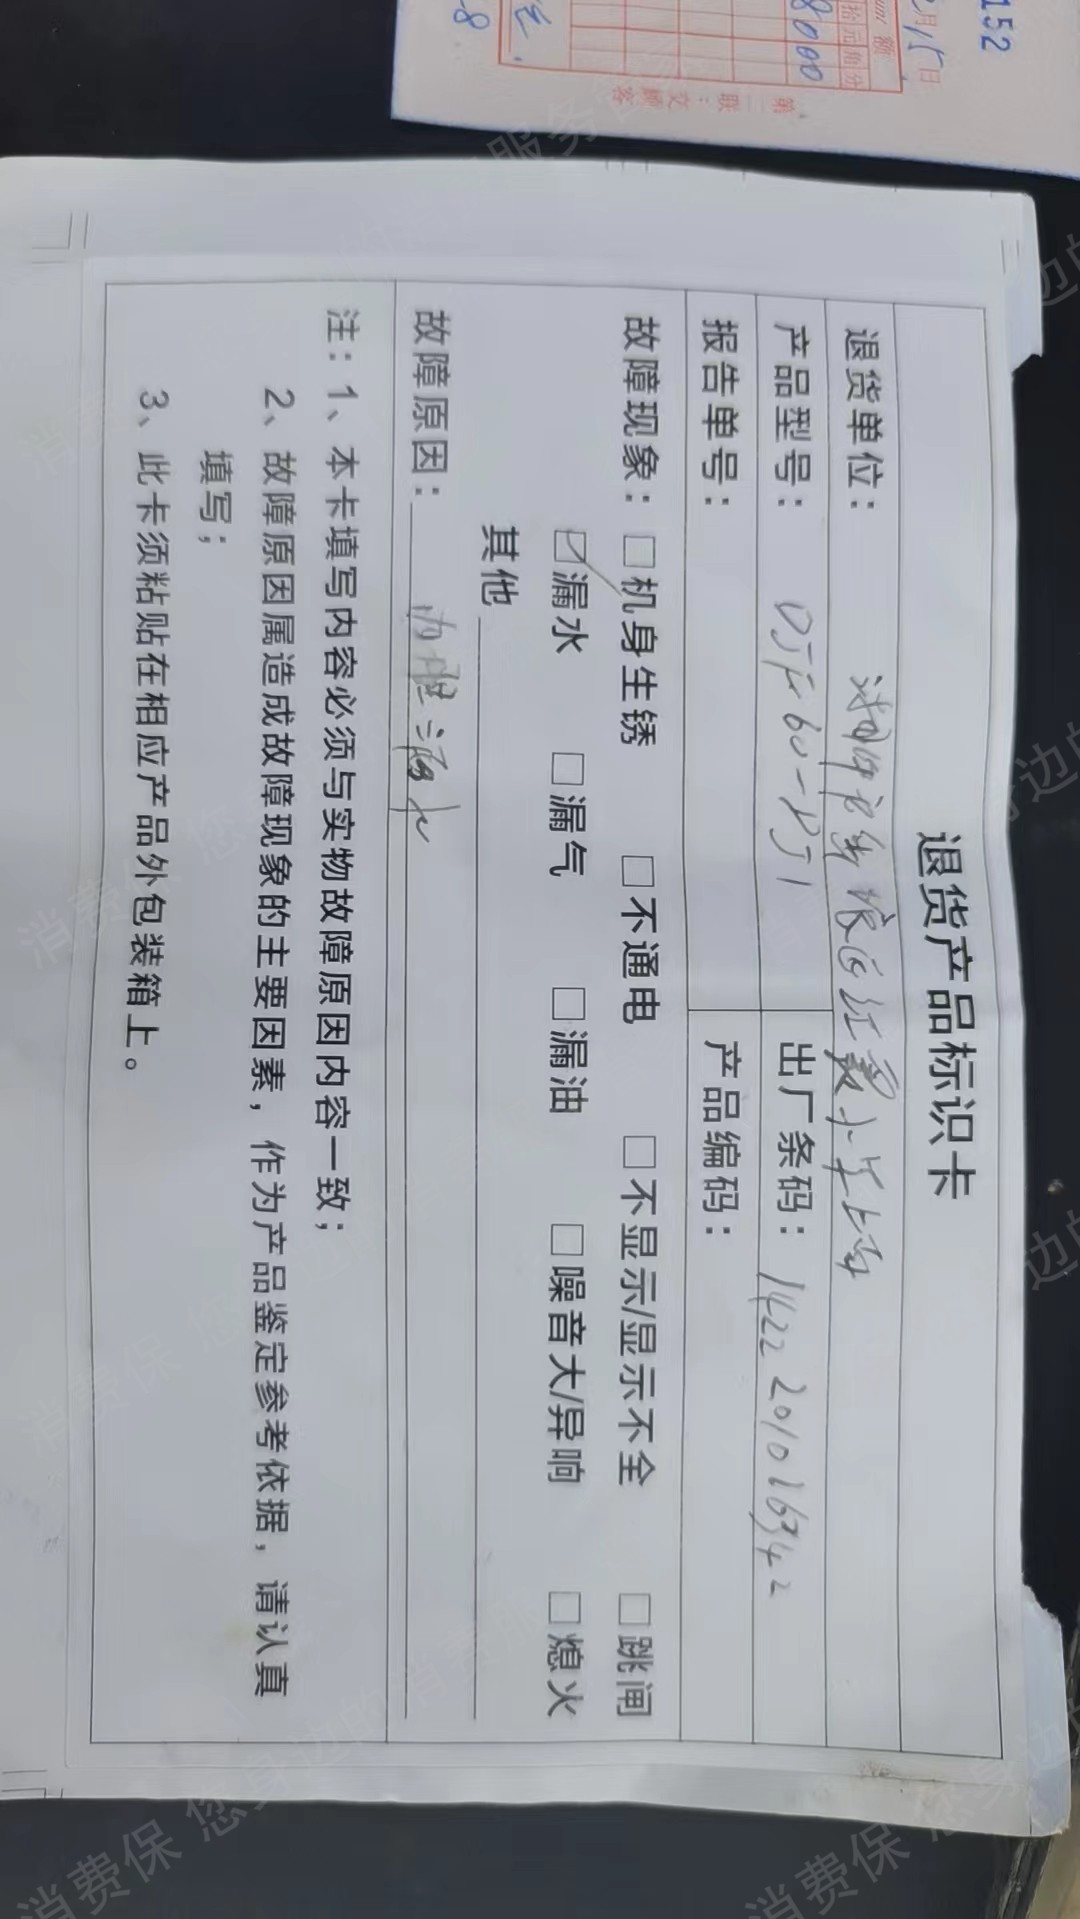 退货产品标识卡
退货单位：
产品型号： DJF60- 出厂条码： 1422 201016342
报告单号： 产品编码：
故障现象：□机身生锈 □不通电 □不显示/显示不全 □跳闸
☑漏水 □漏气 □漏油 □噪音大/异响 □熄火
其他
故障原因： 内胆漏水
注：1、本卡填写内容必须与实物故障原因内容一致；
2、故障原因属造成故障现象的主要因素，作为产品鉴定参考依据，请认真
填写；
3、此卡须粘贴在相应产品外包装箱上。
152
月15日
额
拾元角分
8000
第二联：交顾客
消费保 您身边的消费服务